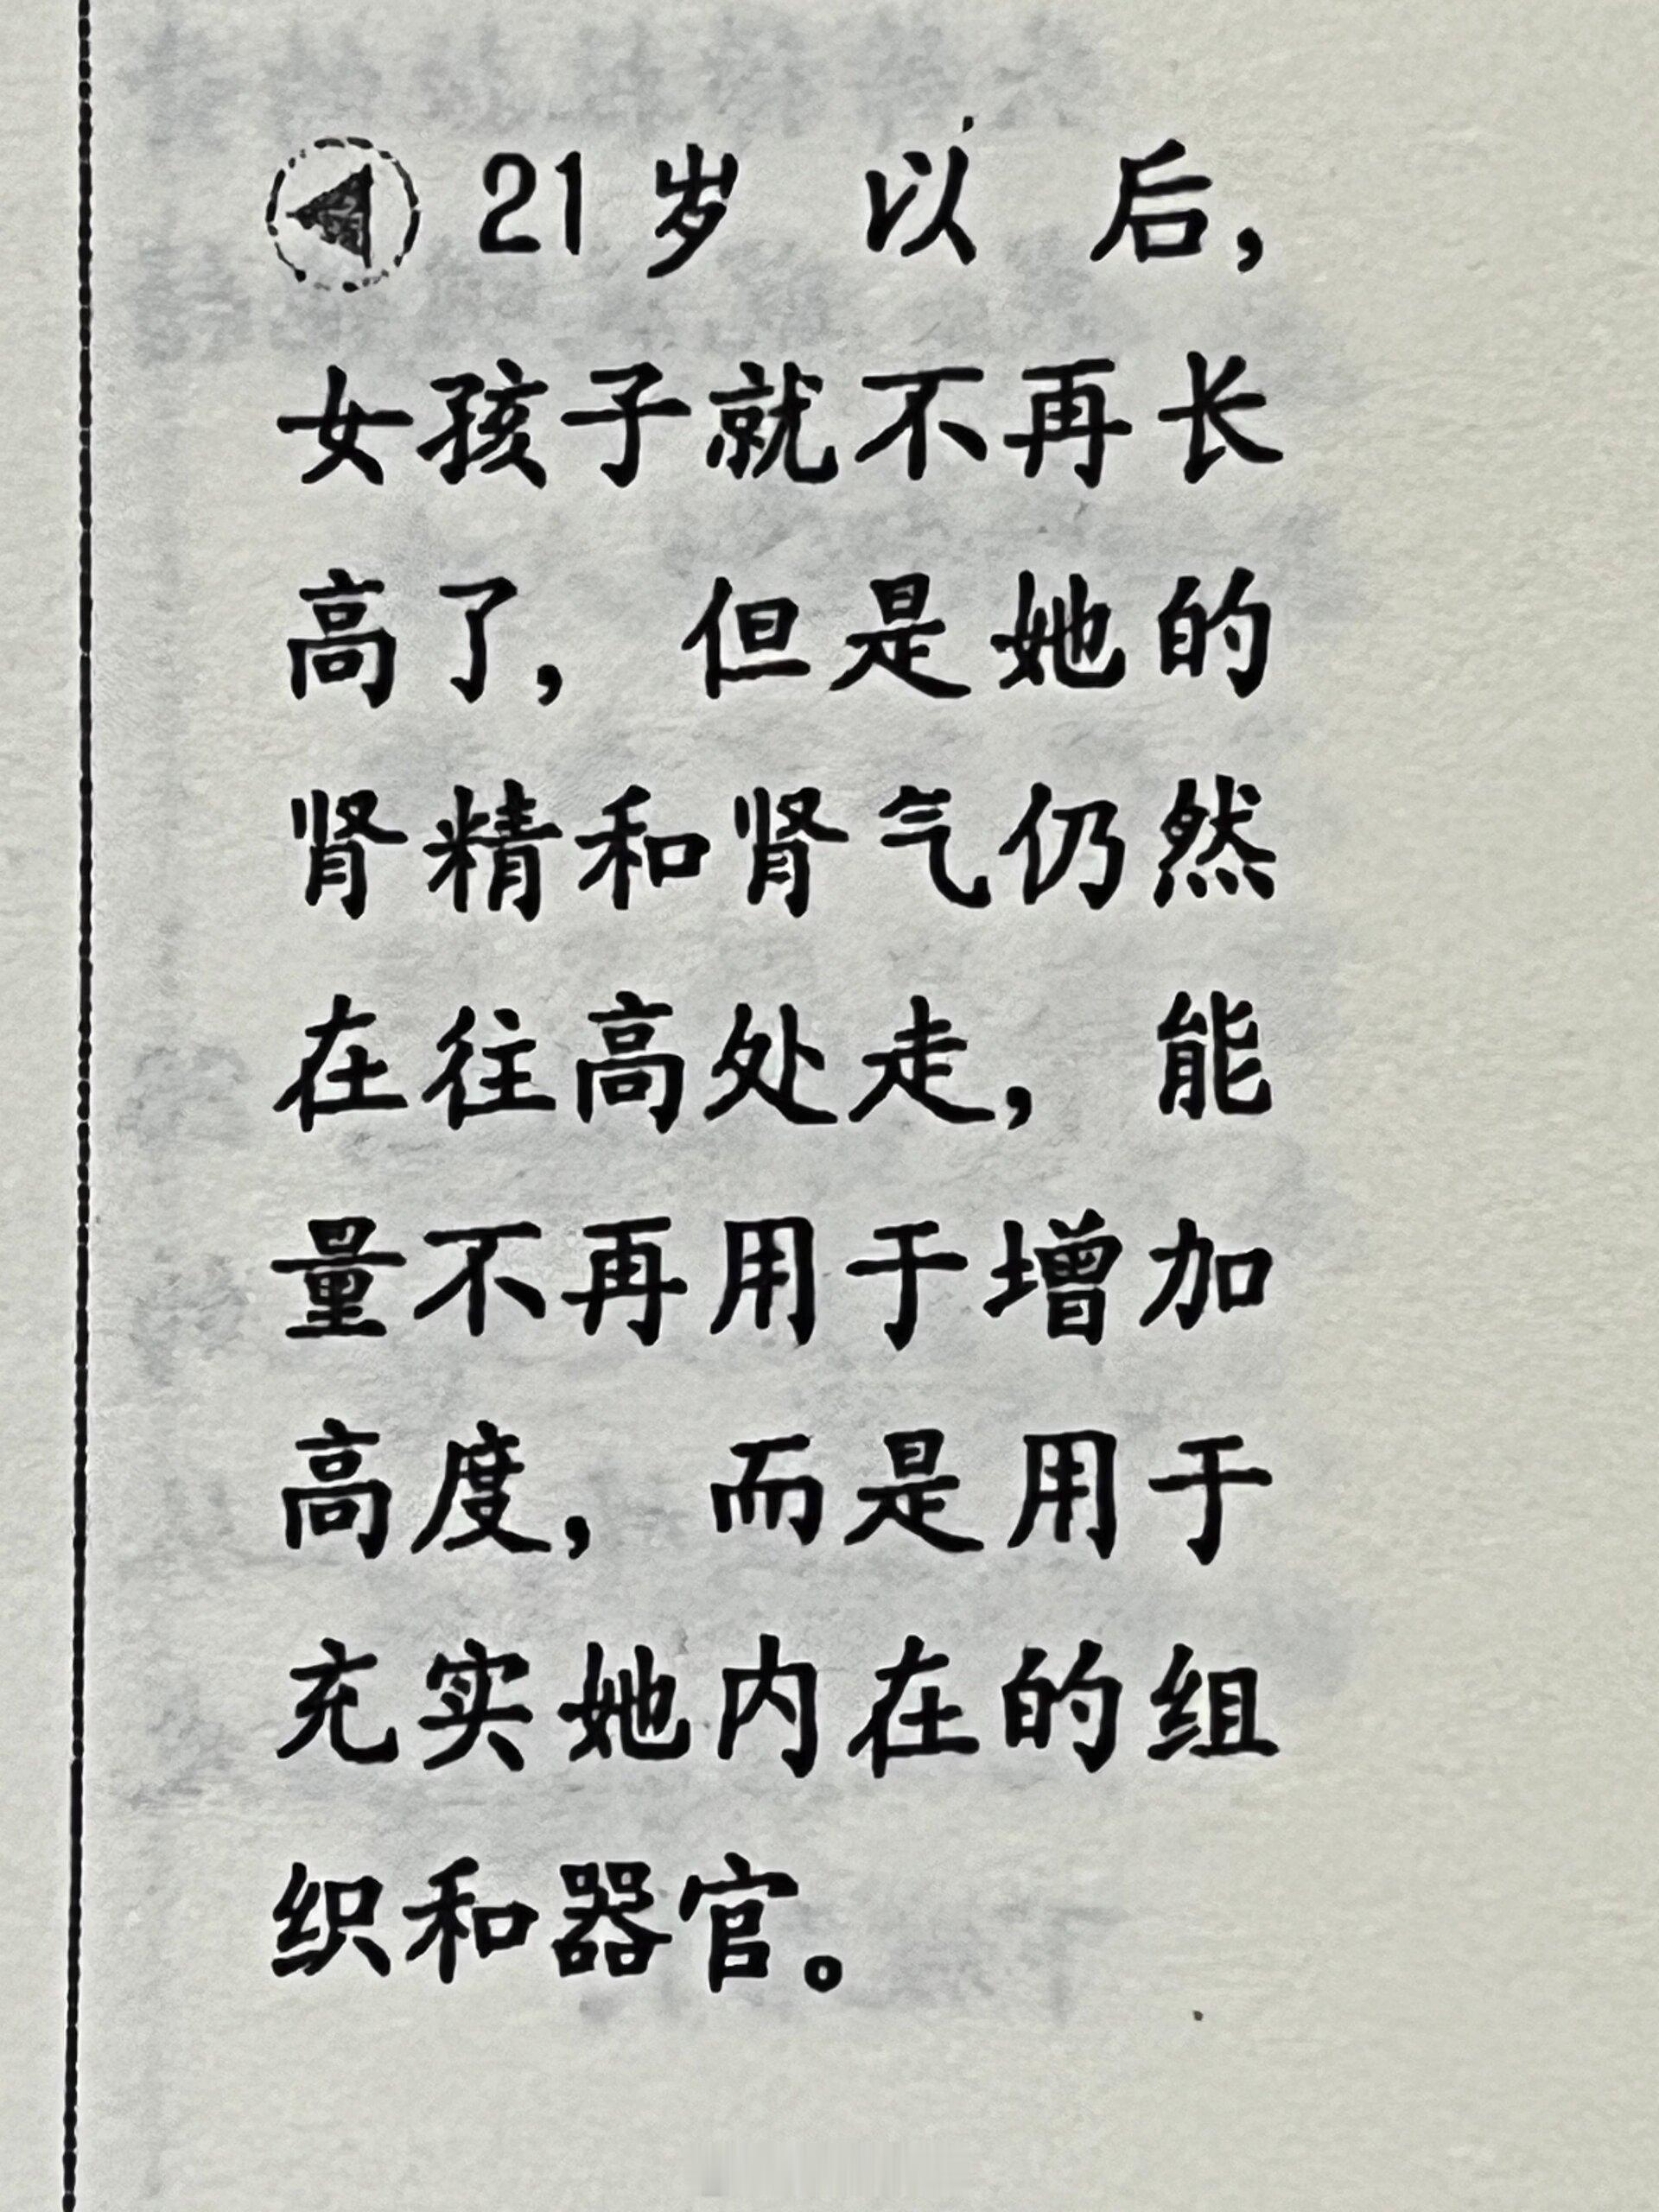 21岁以后，
女孩子就不再长
高了，但是她的
肾精和肾气仍然
在往高处走，能
量不再用于增加
高度，而是用于
充实她内在的组
织和器官。